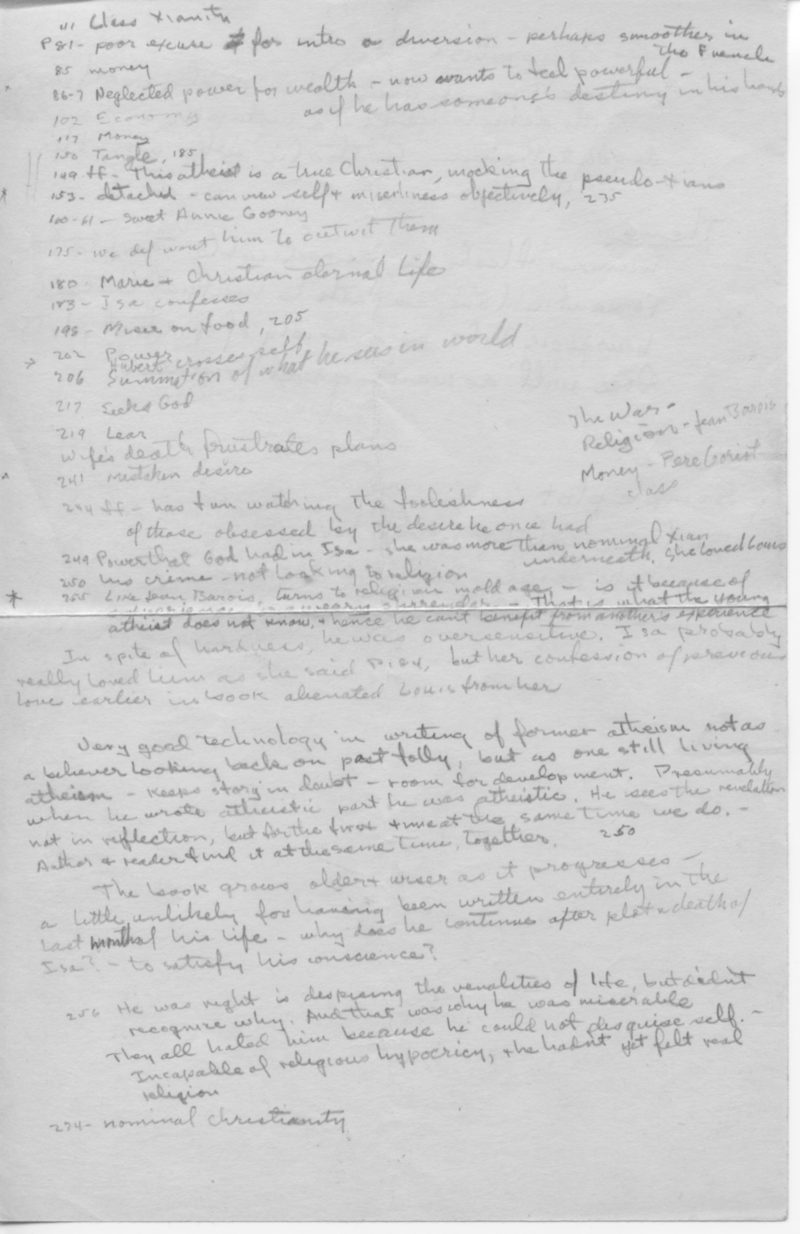 111 Class Xianity
P 81 - poor excuse for intro a diversion - perhaps smoother in
the French
85 money
86-7 Neglected power for wealth - now wants to feel powerful -
as if he has someone's destiny in his hands
102 Economy
117 Money
150 Tangle, 185
149 ff - This atheist is a true Christian, mocking the pseudo-Xians
153 - detached - can view self & miserliness objectively, 235
160-61 - Sweet Annie Gooney
175 - we def want him to outwit them
180 Marie & Christian eternal life
183 - Isa confesses
198 - Miser on food, 205
202 Power
Hubert crosses self
206 Summation of what he sees in world
217 Seeks God
219 Lear
Wife's death frustrates plans
241 Mistaken desire
The War -
Religion - Jean Barois
Money - Pere Goriot
class
244 ff - has fun watching the foolishness
of those obsessed by the desire he once had
249 Power that God had in Isa - she was more than nominal Xian
underneath, she loved Louis
250 his crime - not looking to religion
255 Like Jean Barois, turns to religion in old age - is it because of
surrender - That is what the young
atheist does not know, & hence he can't benefit from another's experience
In spite of hardness, he was oversensitive. Isa probably
really loved him as she said, but her confession of previous
love earlier in book alienated Louis from her
Very good technology in writing of former atheism not as
a believer looking back on past folly, but as one still living
atheism - keeps story in doubt - room for development. Presumably
when he wrote atheistic part he was atheistic. He sees the revelation
not in reflection, but for the first time at the same time we do. -
Author & reader find it at the same time, together. 250
The book grows older & wiser as it progresses -
a little unlikely for having been written entirely in the
last month of his life - why does he continue after plot & death of
Isa? - to satisfy his conscience?
256 He was right in despising the venalities of life, but didn't
recognize why. And that was why he was miserable
They all hated him because he could not disguise self. -
Incapable of religious hypocricy, & he hadn't yet felt real
religion
274 - nominal christianity